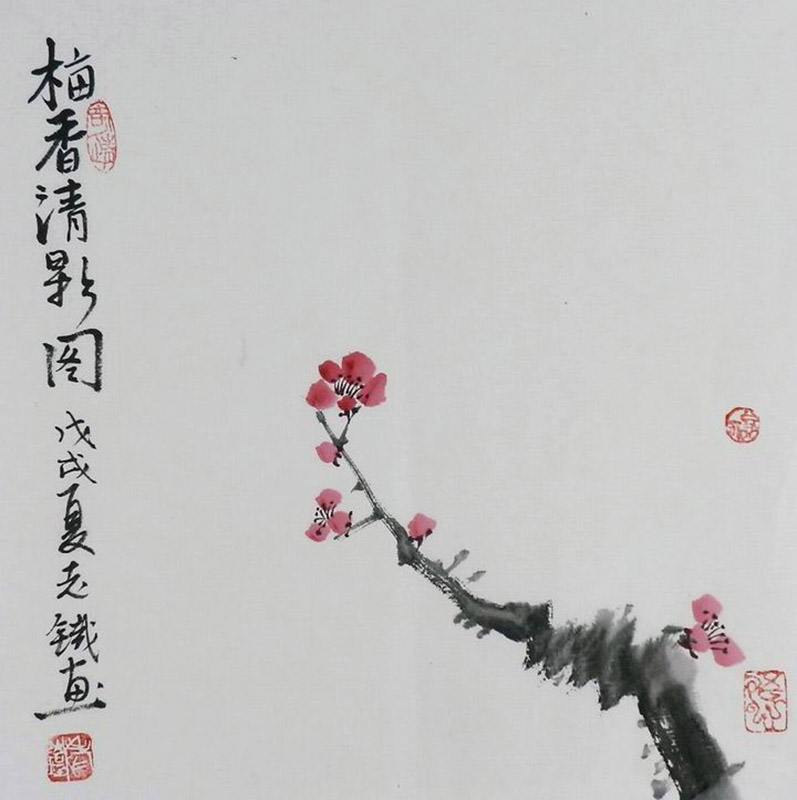 梅香清影图
戊戌夏老鐵画